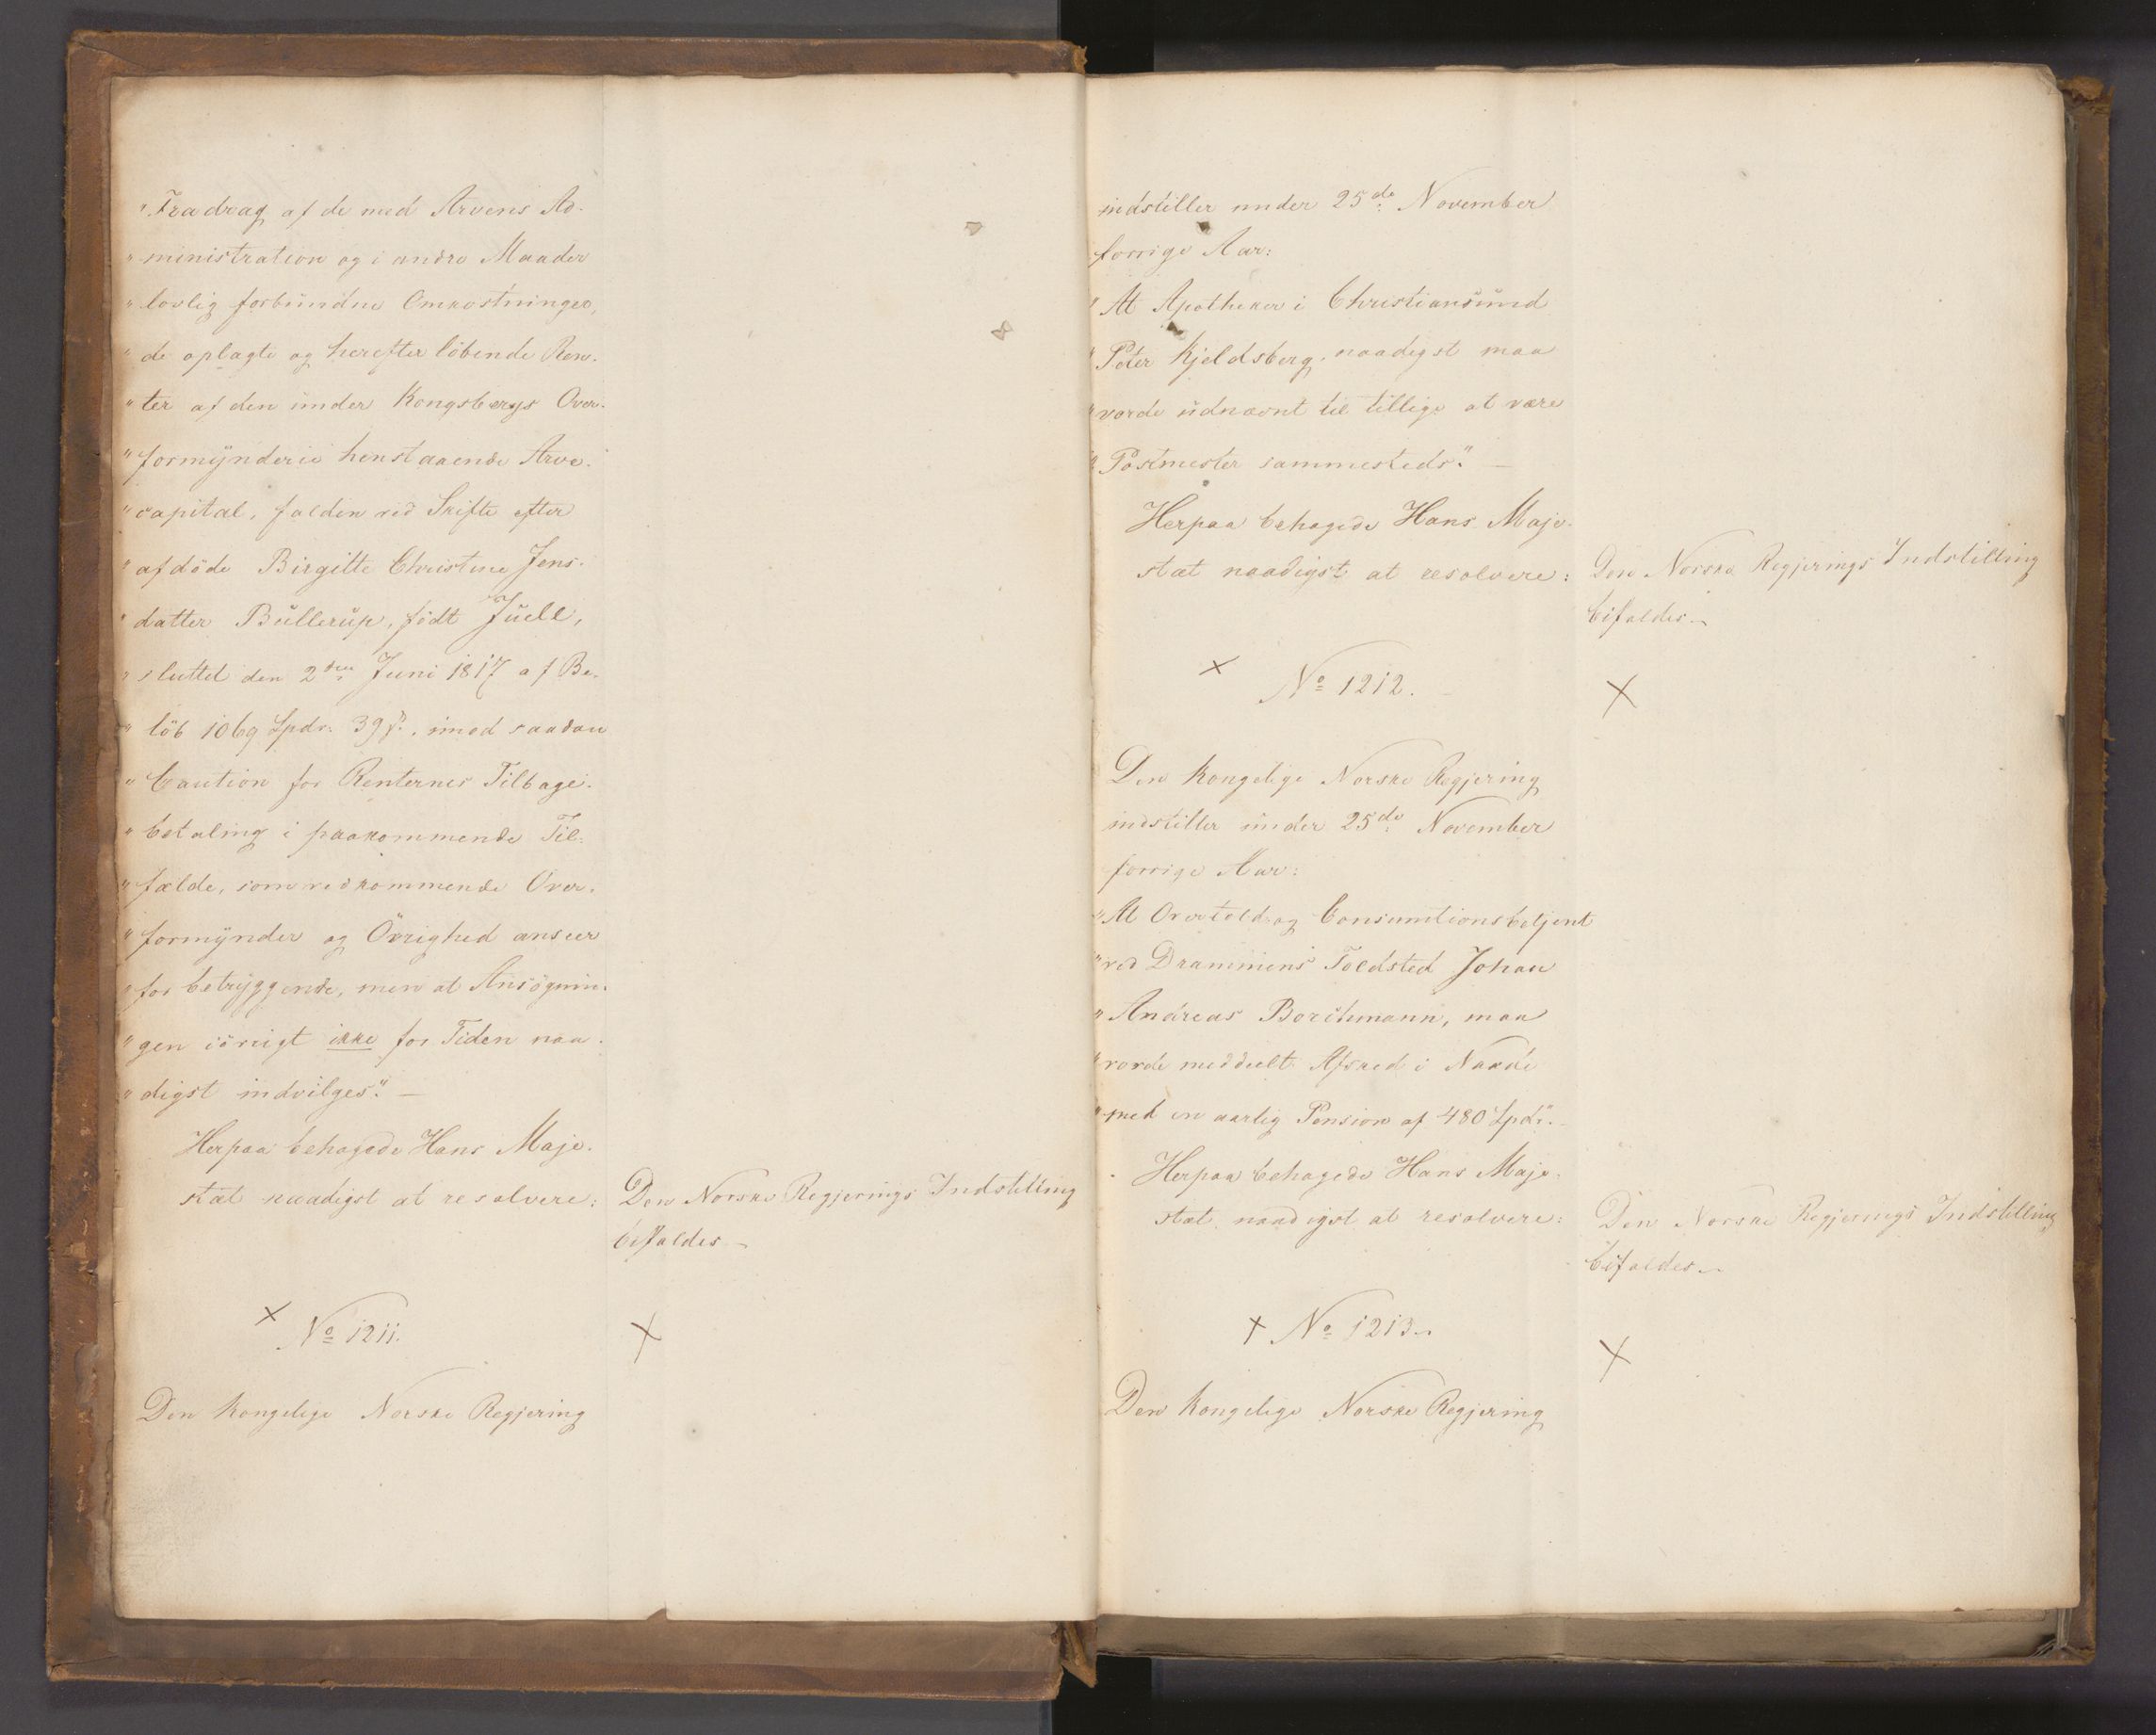 "Fradrag af de med Arvens Ad-
"ministration og i andre Maader
"lovlig forbundne Omkostninger,
"de oplagte og herefter löbende Ren-
"ter af den under Kongsbergs Over-
"formynderie henstaaende Arve-
"capital, falden ved Skifte efter
"afdöde Birgitte Christine Jens-
"datter Bullerup, födt Juell,
"sluttet den 2den Juni 1817 af Be-
"löb 1069 Spdr. 39 s., imod saadan
"Caution for Renternes Tilbage-
"betaling i paakommende Til-
"fælde, som vedkommende Over-
"formynder og Övrighed anseer
"for betryggende, men at Ansögnin-
"gen iövrigt ikke for Tiden naa-
"digst indvilges". —
Herpaa behagede Hans Maje-
stæt naadigst at resolvere:
Den Norske Regjerings Indstilling
bifaldes —
× No 1211. ×
Den Kongelige Norske Regjering
indstiller under 25de November
forrige Aar:
"At Apotheker i Christiansund
"Peter Kjeldsberg, naadigst maa
"vorde udnævnt til tillige at være
"Postmester sammesteds". —
Herpaa behagede Hans Maje-
stæt naadigst at resolvere:
Den Norske Regjerings Indstilling
bifaldes —
× No 1212. ×
Den Kongelige Norske Regjering
indstiller under 25de November
forrige Aar:
"At Overtold- og Consumtionsbetjent
"ved Drammens Toldsted Johan
"Andreas Borchmann, maa
"vorde meddeelt Afsked i Naade
"med en aarlig Pension af 480 Spdr". —
Herpaa behagede Hans Maje-
stæt naadigst at resolvere:
Den Norske Regjerings Indstilling
bifaldes —
× No 1213. ×
Den Kongelige Norske Regjering